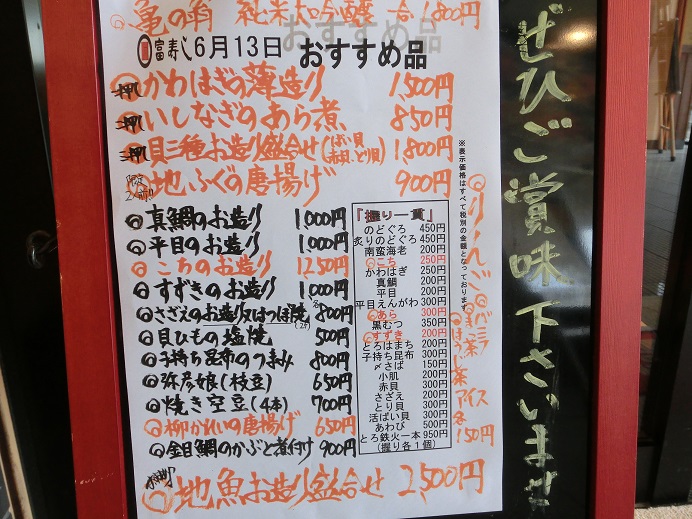 亀の翁 純米大吟醸 一合 1,800円
富寿し 6月13日 おすすめ品
押 ◎かわはぎの薄造り 1,500円
押 ◎いしなぎのあら煮 850円
押 ◎貝三種お造り盛合せ(ばい貝 赤貝、とり貝) 1,800円
限定2人前 地ふぐの唐揚げ 900円
◎真鯛のお造り 1,000円
◎平目のお造り 1,000円
◎こちのお造り 1250円
◎すずきのお造り 1,000円
◎さざえのお造り又はつぼ焼(2ケ) 各800円
◎貝ひもの塩焼 500円
◎子持ち昆布のつまみ 800円
◎弥彦娘(枝豆) 650円
◎焼き空豆(4本) 700円
◎柳かれいの唐揚げ 650円
◎金目鯛のかぶと煮付け 900円
◎地魚お造り盛合せ 2,500円
「握り一貫」
のどぐろ 450円
炙りのどぐろ 450円
南蛮海老 200円
◎こち 250円
かわはぎ 250円
真鯛 200円
平目 200円
平目えんがわ 300円
◎あら 300円
黒むつ 350円
◎すずき 200円
とろはまち 200円
子持ち昆布 300円
〆さば 150円
小肌 200円
赤貝 300円
さざえ 200円
とり貝 300円
活ばい貝 300円
あわび 500円
とろ鉄火一本 950円
(握り各1個)
※表示価格はすべて税別の金額となっております。
◎りんご
◎バニラ
◎抹茶
◎ほうじ茶
アイス
各150円
ぜひご賞味下さいませ